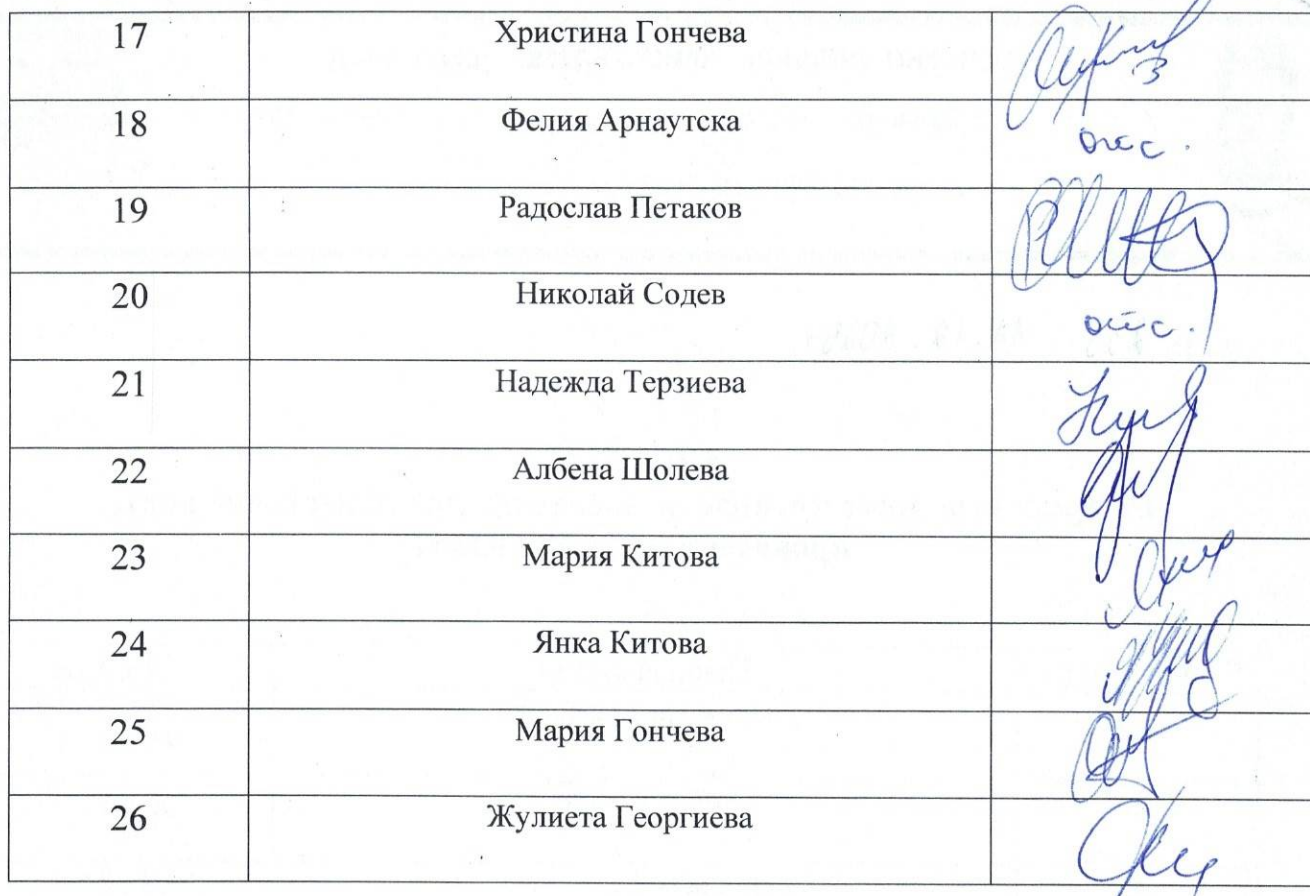 17 Христина Гончева
18 Фелия Арнаутска отс.
19 Радослав Петаков
20 Николай Содев отс.
21 Надежда Терзиева
22 Албена Шолева
23 Мария Китова
24 Янка Китова
25 Мария Гончева
26 Жулиета Георгиева